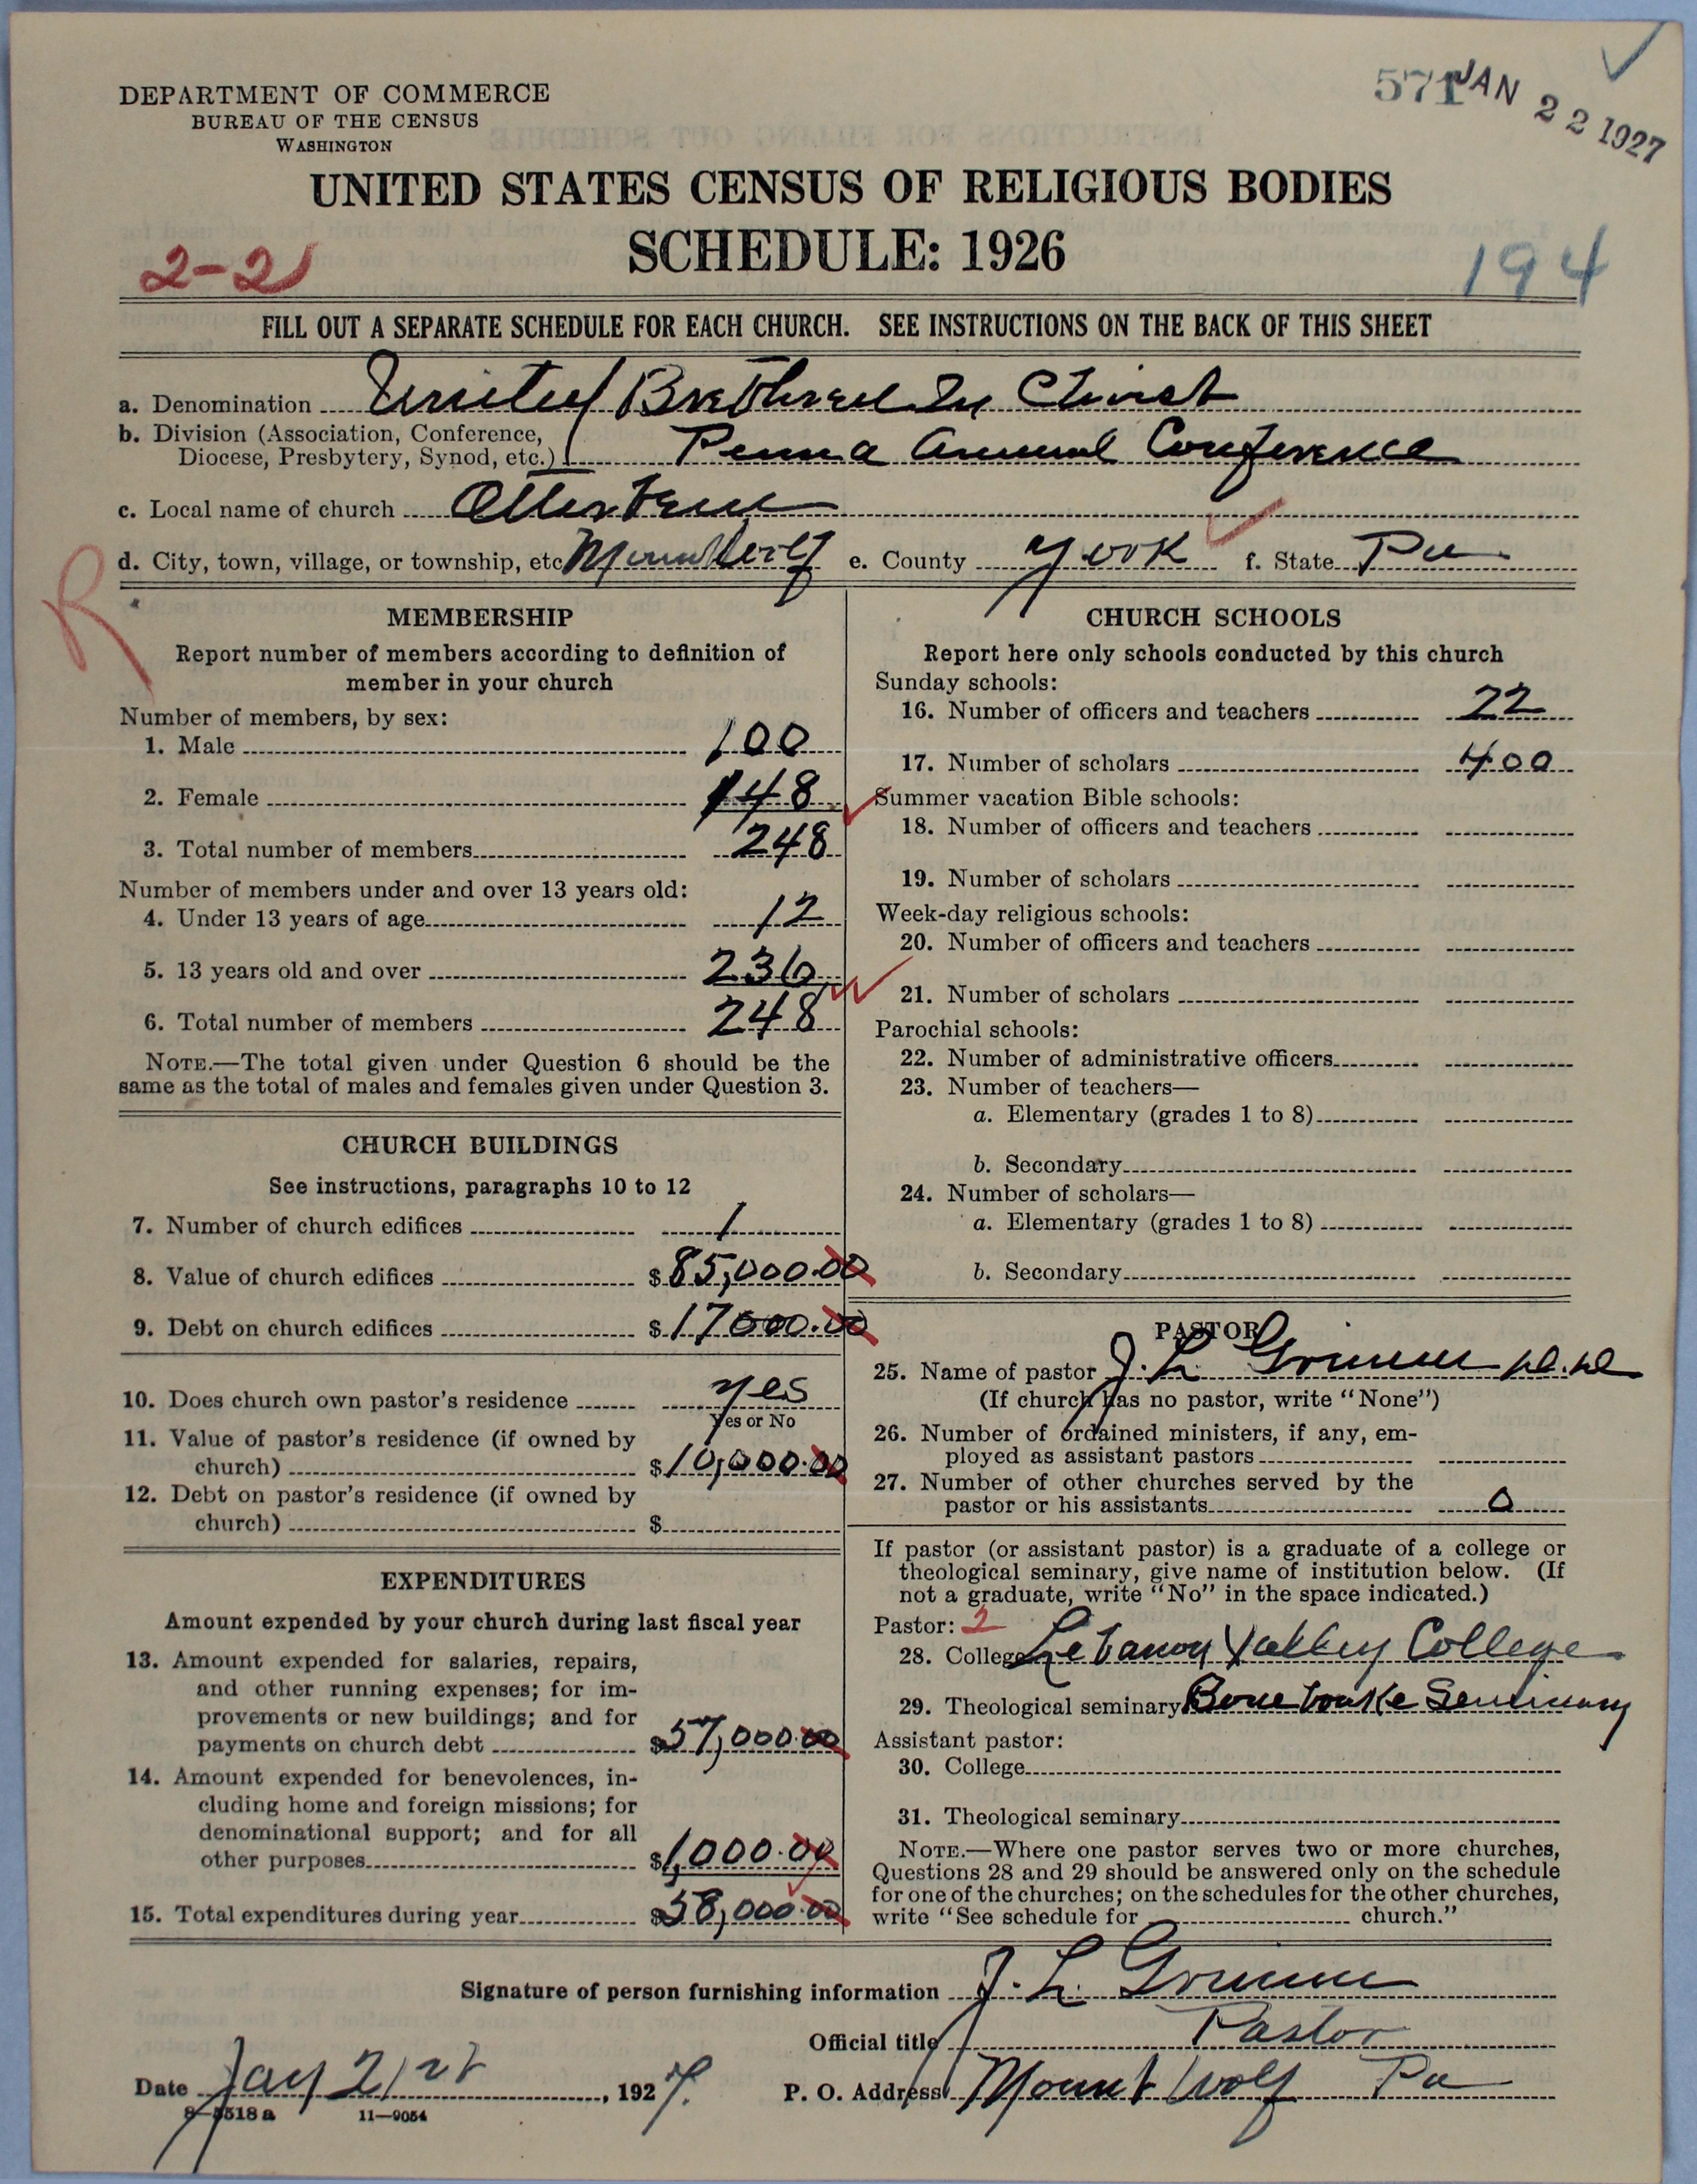 DEPARTMENT OF COMMERCE
BUREAU OF THE CENSUS
WASHINGTON
571 JAN 22 1927
UNITED STATES CENSUS OF RELIGIOUS BODIES
SCHEDULE: 1926
2-2
194
FILL OUT A SEPARATE SCHEDULE FOR EACH CHURCH. SEE INSTRUCTIONS ON THE BACK OF THIS SHEET
a. Denomination United Brethren In Christ
b. Division (Association, Conference,
Diocese, Presbytery, Synod, etc.) Penna Annual Conference
c. Local name of church Otterbein
d. City, town, village, or township, etc. Mount Wolf e. County York f. State Pa
R
MEMBERSHIP
Report number of members according to definition of
member in your church
Number of members, by sex:
1. Male 100
2. Female 148
3. Total number of members 248
Number of members under and over 13 years old:
4. Under 13 years of age 12
5. 13 years old and over 236
6. Total number of members 248
NOTE.—The total given under Question 6 should be the
same as the total of males and females given under Question 3.
CHURCH BUILDINGS
See instructions, paragraphs 10 to 12
7. Number of church edifices 1
8. Value of church edifices $85,000.00
9. Debt on church edifices $17000.00
10. Does church own pastor's residence yes
Yes or No
11. Value of pastor's residence (if owned by
church) $10,000.00
12. Debt on pastor's residence (if owned by
church) $
EXPENDITURES
Amount expended by your church during last fiscal year
13. Amount expended for salaries, repairs,
and other running expenses; for im-
provements or new buildings; and for
payments on church debt $57,000.00
14. Amount expended for benevolences, in-
cluding home and foreign missions; for
denominational support; and for all
other purposes $1,000.00
15. Total expenditures during year $58,000.00
CHURCH SCHOOLS
Report here only schools conducted by this church
Sunday schools:
16. Number of officers and teachers 22
17. Number of scholars 400
Summer vacation Bible schools:
18. Number of officers and teachers
19. Number of scholars
Week-day religious schools:
20. Number of officers and teachers
21. Number of scholars
Parochial schools:
22. Number of administrative officers
23. Number of teachers—
a. Elementary (grades 1 to 8)
b. Secondary
24. Number of scholars—
a. Elementary (grades 1 to 8)
b. Secondary
PASTOR
25. Name of pastor J. L. Grimm D.D.
(If church has no pastor, write "None")
26. Number of ordained ministers, if any, em-
ployed as assistant pastors
27. Number of other churches served by the
pastor or his assistants 0
If pastor (or assistant pastor) is a graduate of a college or
theological seminary, give name of institution below. (If
not a graduate, write "No" in the space indicated.)
Pastor: 2
28. College Lebanon Valley College
29. Theological seminary Bonebrake Seminary
Assistant pastor:
30. College
31. Theological seminary
NOTE.—Where one pastor serves two or more churches,
Questions 28 and 29 should be answered only on the schedule
for one of the churches; on the schedules for the other churches,
write "See schedule for church."
Signature of person furnishing information J. L. Grimm
Official title Pastor
Date Jany 21, 1927.
P. O. Address Mount Wolf Pa
8—5518 a 11—9054